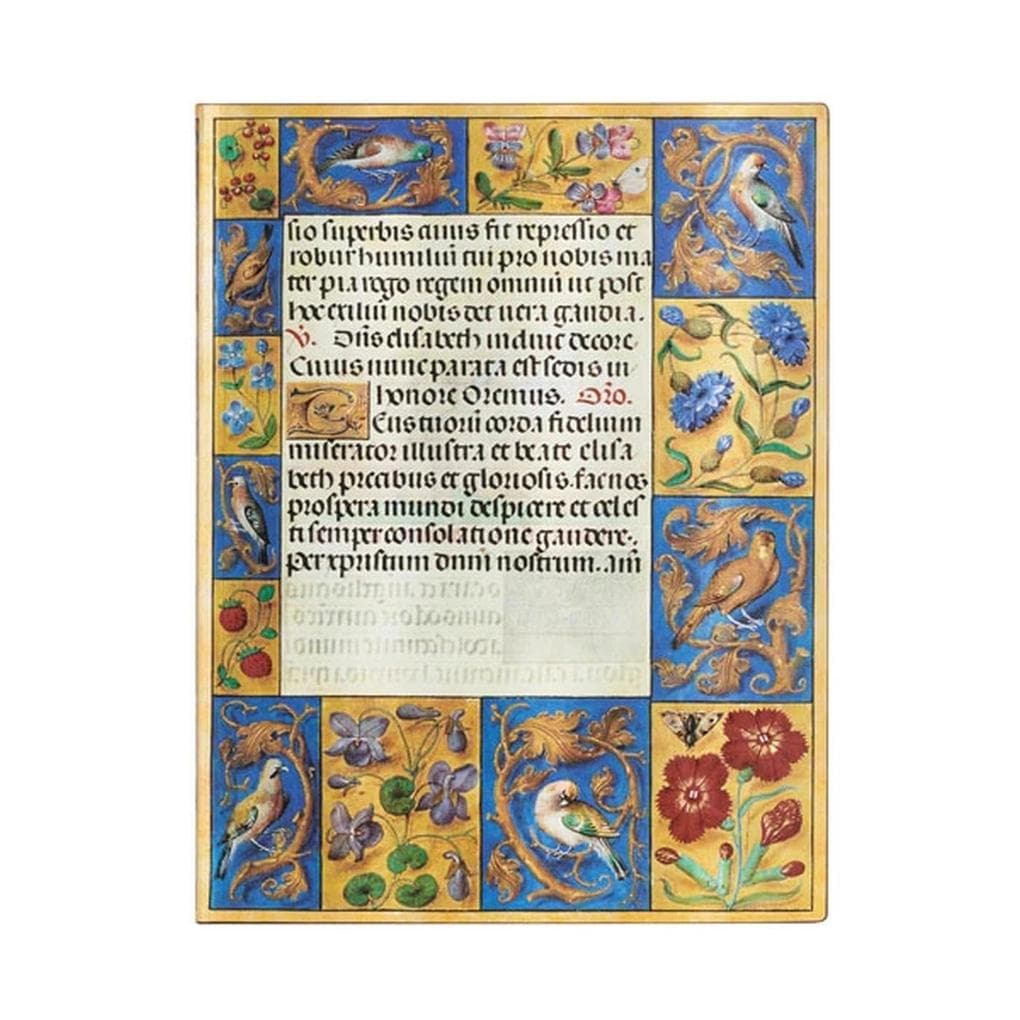 sio superbis cuius fit repressio et
robur humiliũ tui pro nobis ma
ter pia rogo regem omniũ ut post
hoc exiliũ nobis det uera gaudia.
V. Dñs elisabeth induit decore
Cuius nunc parata est sedis in
honore Oremus. Oro.
Deus tuorũ corda fidelium
miserator illustra et beate elisa
beth precibus et gloriosis. fac nos
prospera mundi despicere et celes
ti semper consolatione gaudere.
Per xpistum dnm nostrum. am